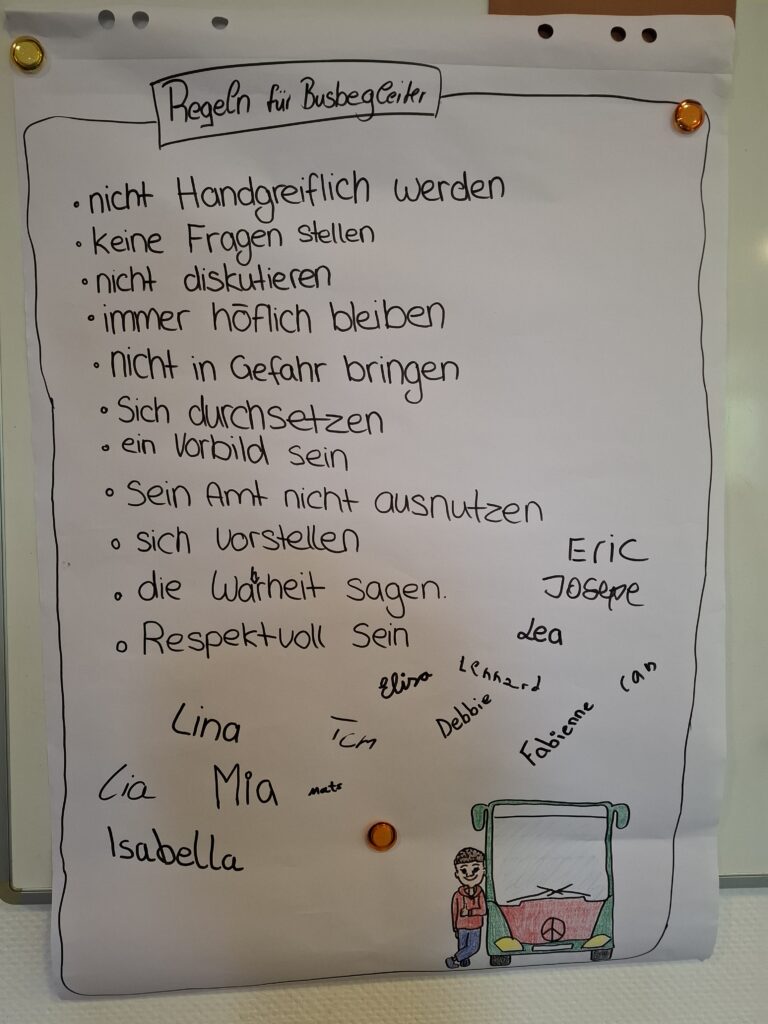 Regeln für Busbegleiter
• nicht Handgreiflich werden
• keine Fragen stellen
• nicht diskutieren
• immer höflich bleiben
• nicht in Gefahr bringen
• Sich durchsetzen
• ein Vorbild sein
• Sein Amt nicht ausnutzen
• sich vorstellen
• die Wahrheit sagen.
• Respektvoll Sein
Eric
Josepe
Lea
Elisa
Lennard
Can
Debbie
Fabienne
Lina
Tom
Lia
Mia
mats
Isabella